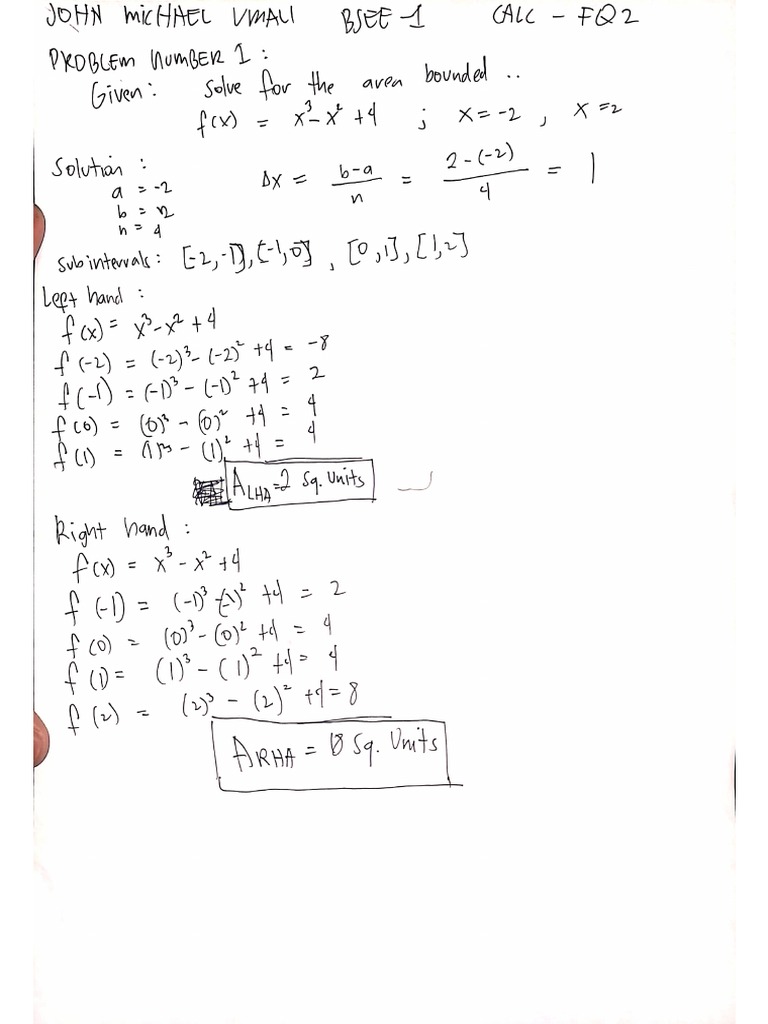 JOHN MICHAEL UMALI BSEE-1 CALC - FQ2
PROBLEM NUMBER 1 :
Given : Solve for the area bounded ..
f(x) = x³-x²+4 ; x=-2 , x=2
Solution :
a = -2
b = 2
n = 4
Δx = b-a/n = 2-(-2)/4 = 1
Subintervals : [-2,-1],[-1,0] , [0,1],[1,2]
Left hand :
f(x) = x³-x²+4
f(-2) = (-2)³-(-2)²+4 = -8
f(-1) = (-1)³-(-1)²+4 = 2
f(0) = (0)³-(0)²+4 = 4
f(1) = (1)³-(1)²+4 = 4
A LHA = 2 Sq. Units
Right hand :
f(x) = x³-x²+4
f(-1) = (-1)³-(-1)²+4 = 2
f(0) = (0)³-(0)²+4 = 4
f(1) = (1)³-(1)²+4 = 4
f(2) = (2)³-(2)²+4 = 8
A RHA = Sq. Units